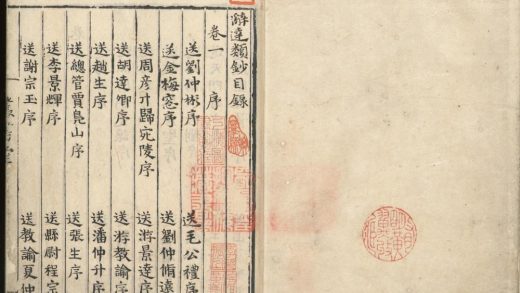 辭達類鈔目錄
卷一 序
送劉仲彬序 送毛公禮序
送金梅窓序 送劉仲脩遠
送周彥升歸宛陵序 送游景達序
送胡達卿序 送游教諭序
送趙生序 送潘仲升序
送總管賈鳧山序 送張生序
送李景輝序 送縣尉程宗
送謝宗玉序 送教諭夏仲